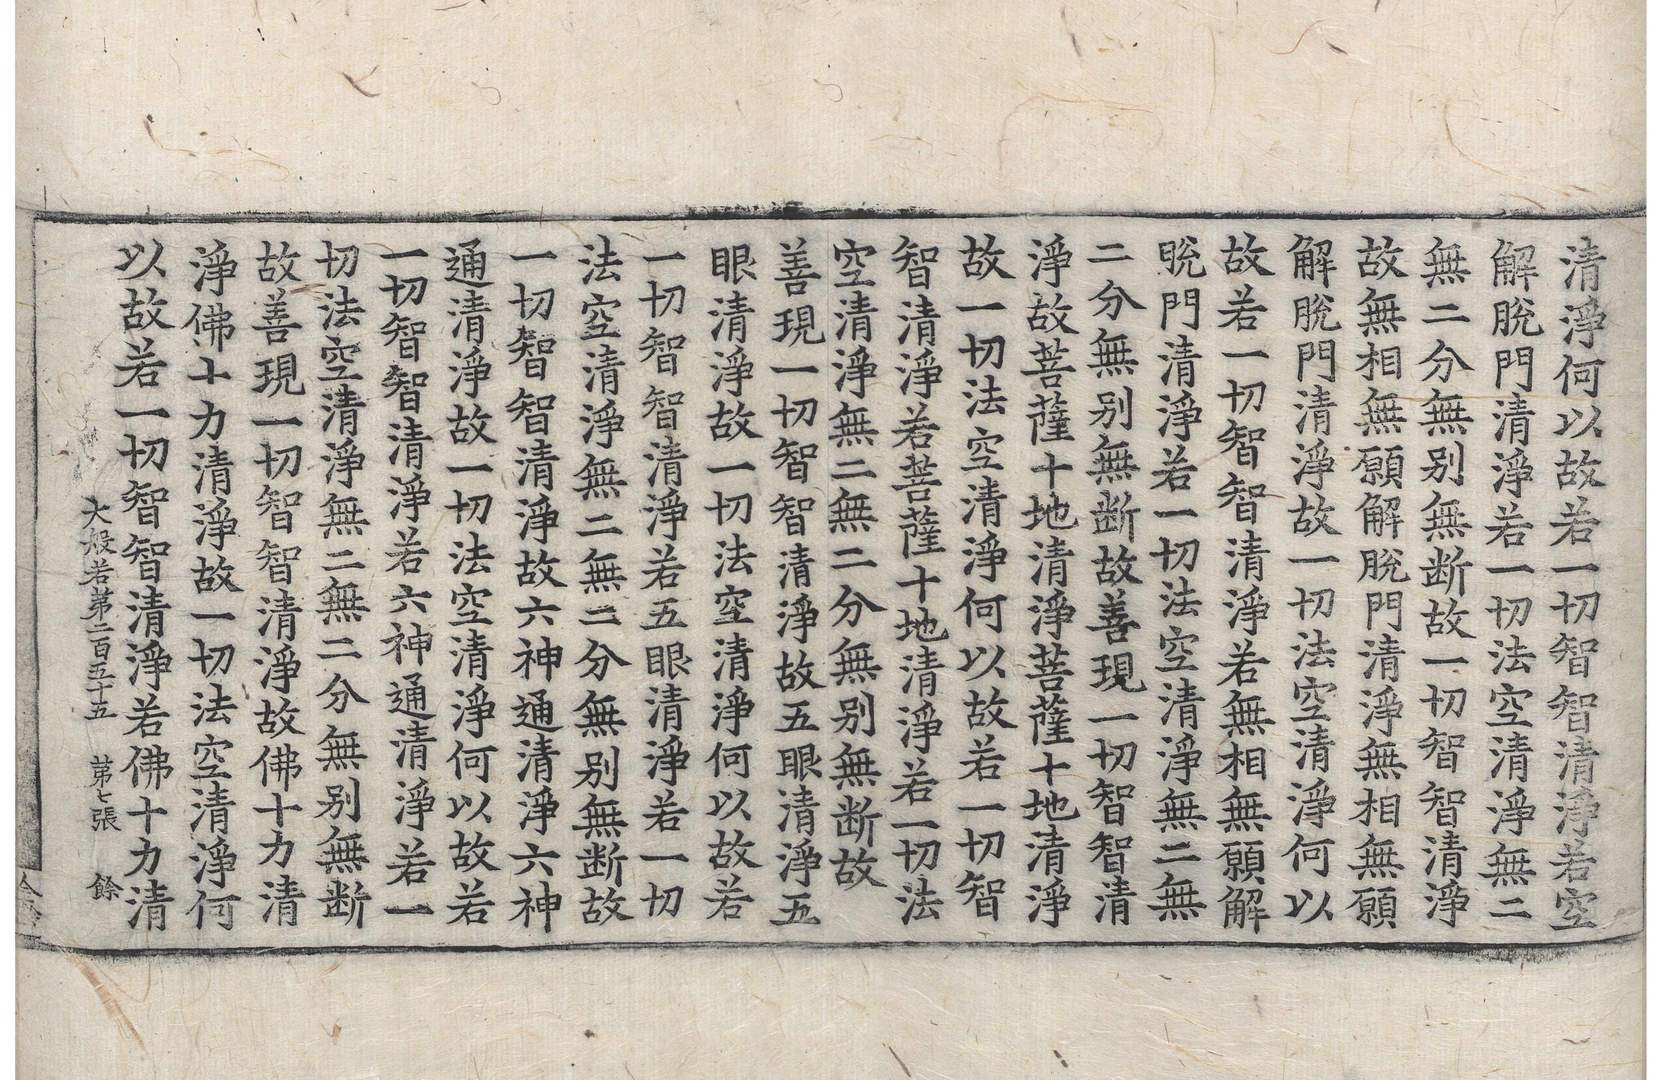 清淨何以故若一切智智清淨若空
解脫門清淨若一切法空清淨無二
無二分無別無断故一切智智清淨
故無相無願解脫門清淨無相無願
解脫門清淨故一切法空清淨何以
故若一切智智清淨若無相無願解
脫門清淨若一切法空清淨無二無
二分無別無断故善現一切智智清
淨故菩薩十地清淨菩薩十地清淨
故一切法空清淨何以故若一切智
智清淨若菩薩十地清淨若一切法
空清淨無二無二分無別無断故
善現一切智智清淨故五眼清淨五
眼清淨故一切法空清淨何以故若
一切智智清淨若五眼清淨若一切
法空清淨無二無二分無別無断故
一切智智清淨故六神通清淨六神
通清淨故一切法空清淨何以故若
一切智智清淨若六神通清淨若一
切法空清淨無二無二分無別無断
故善現一切智智清淨故佛十力清
淨佛十力清淨故一切法空清淨何
以故若一切智智清淨若佛十力清
大般若第二百五十五 第七張 餘